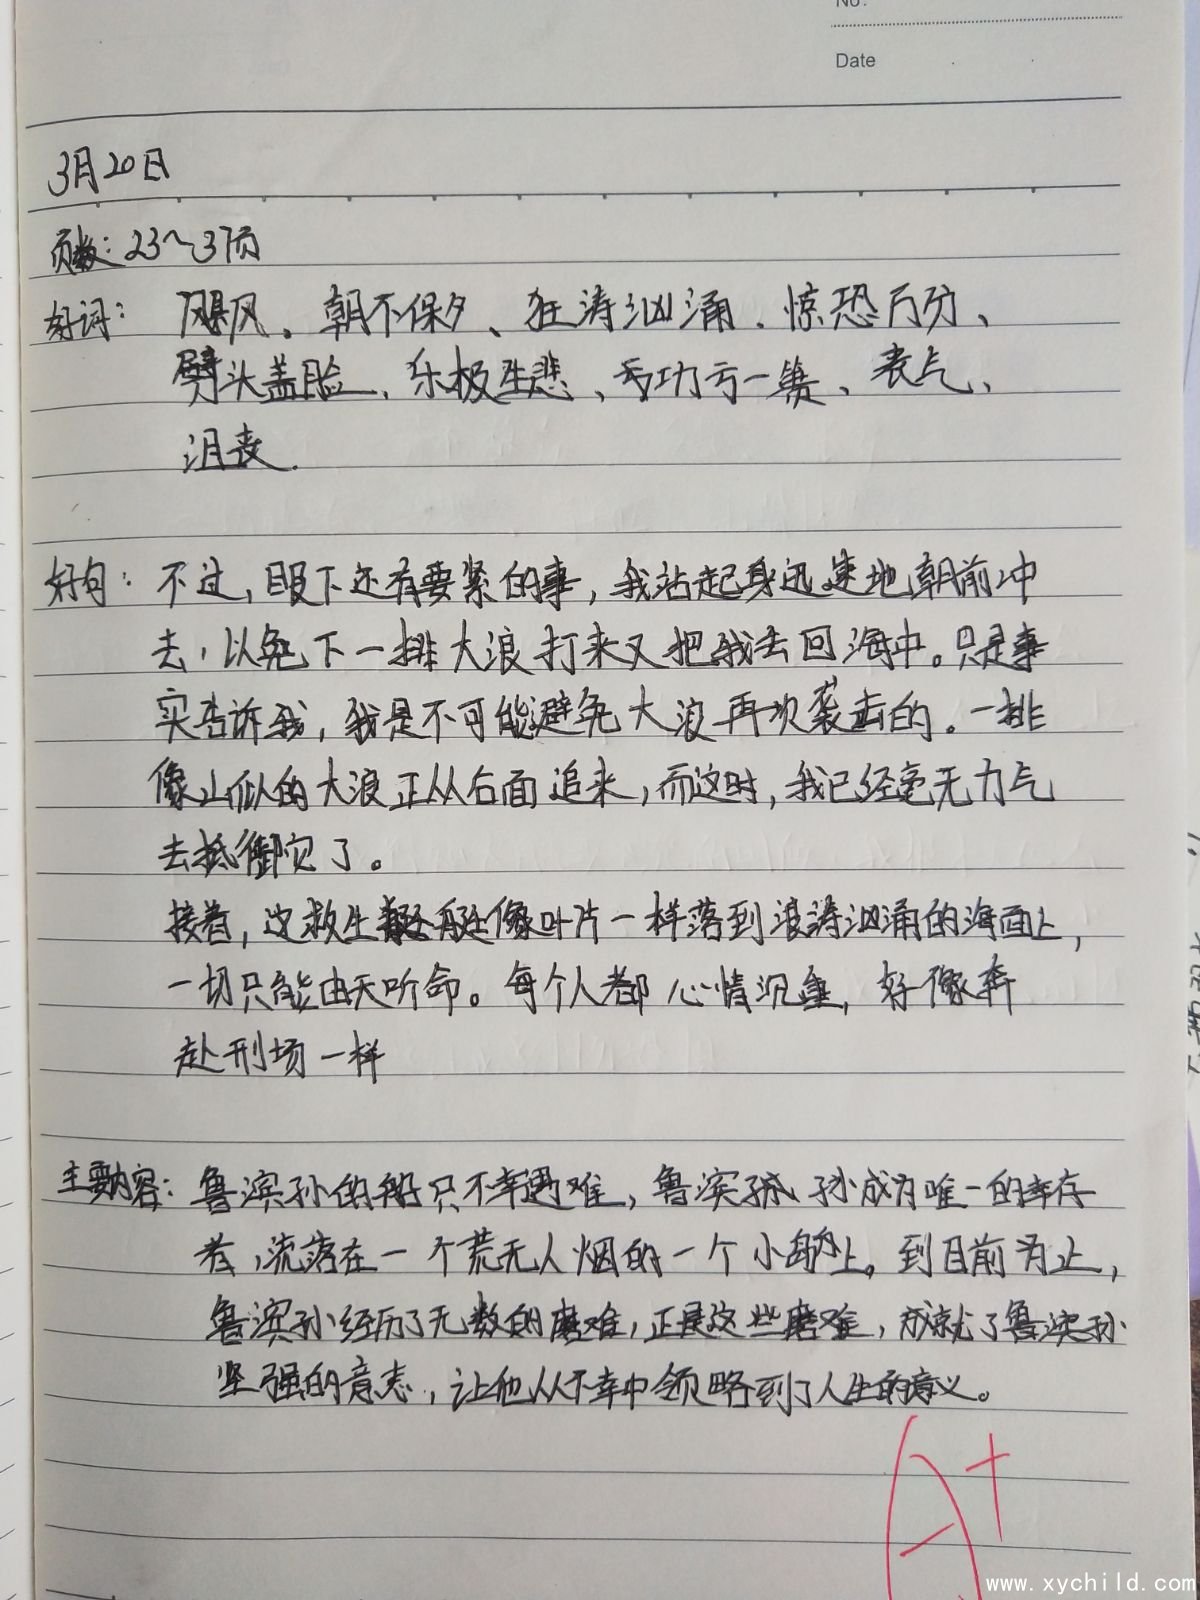 No:
Date
3月20日
页数：23～37页
好词：飓风、朝不保夕、狂涛汹涌、惊恐万分、
劈头盖脸、乐极生悲、亏功亏一篑、丧气、
沮丧.
好句：不过，眼下还有要紧的事，我站起身迅速地朝前冲
去，以免下一排大浪打来又把我去回海中。只是事
实告诉我，我是不可能避免大浪再次袭击的。一排
像山似的大浪正从后面追来，而这时，我已经毫无力气
去抵御灾了。
接着，这救生艇像叶片一样落到浪涛汹涌的海面上，
一切只能由天听命。每个人都心情沉重，好像奔
赴刑场一样
主要内容：鲁滨孙的船只不幸遇难，鲁滨孙成为唯一的幸存
者，流落在一个荒无人烟的一个小岛上。到目前为止，
鲁滨孙经历了无数的磨难，正是这些磨难，成就了鲁滨孙
坚强的意志，让他从不幸中领略到了人生的意义。
A+
www.xychild.com